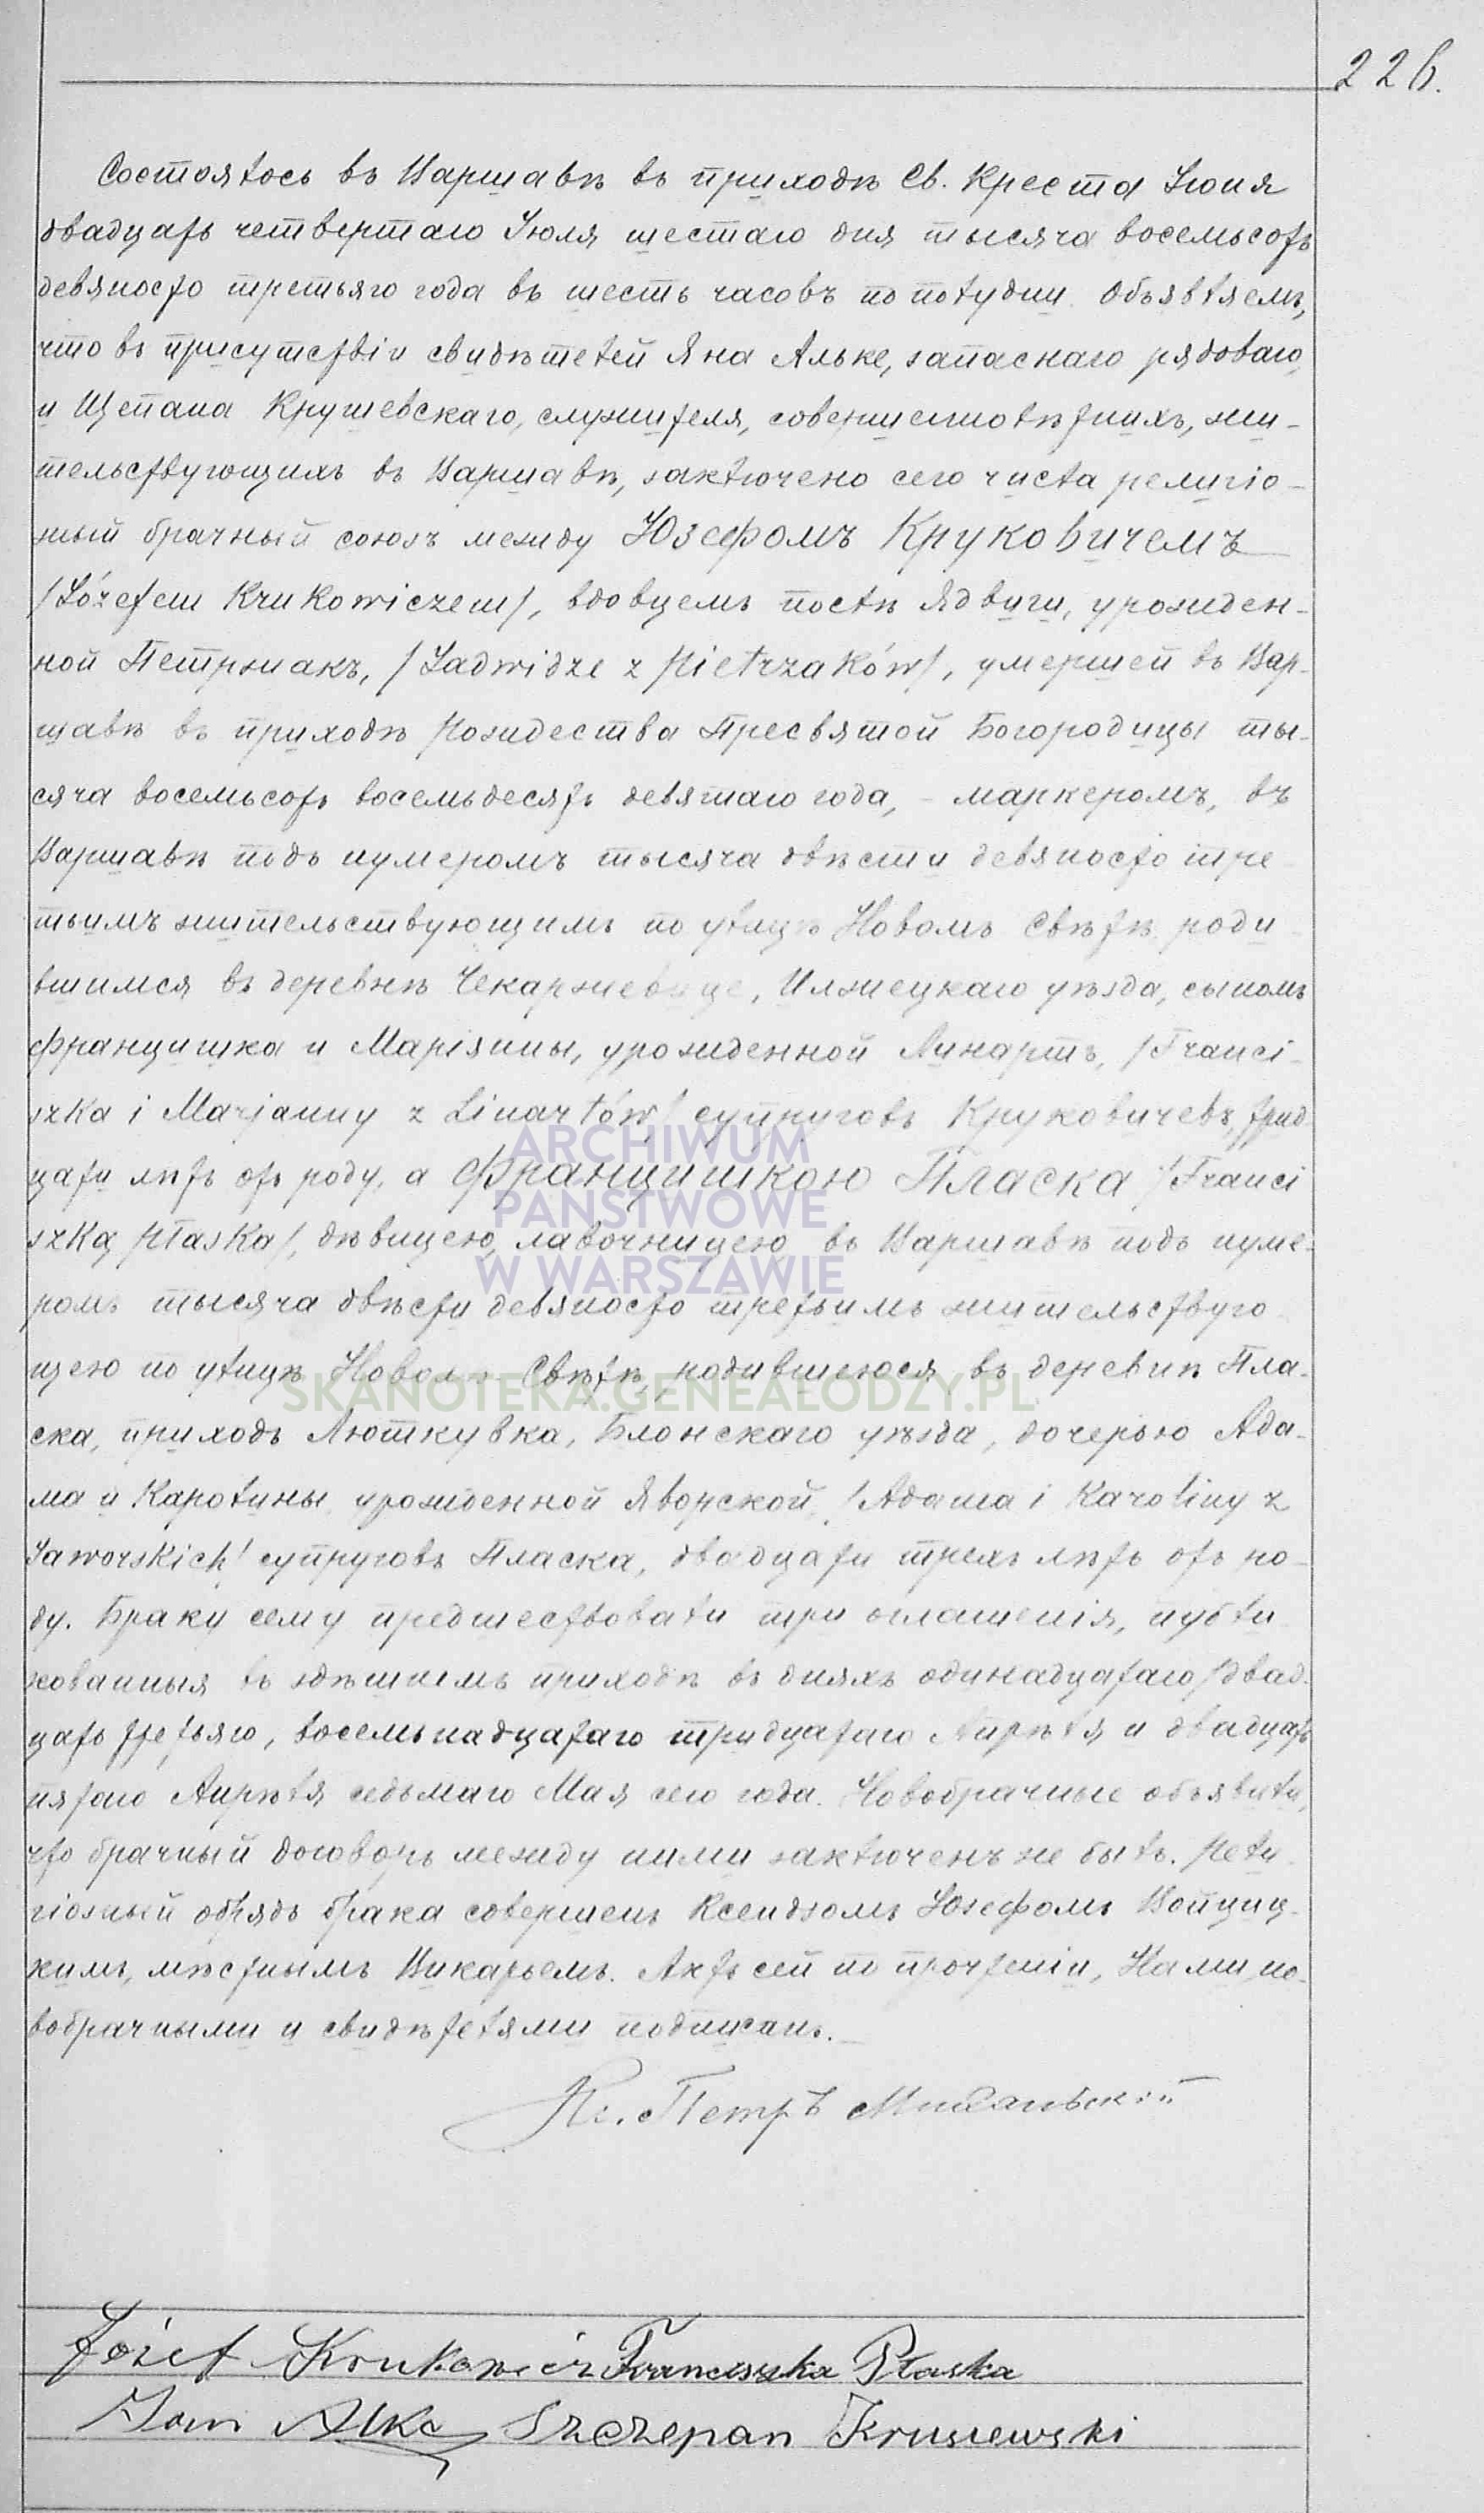 226.
Состоялось въ Варшавѣ въ приходѣ Св. Креста Іюня
двадцать четвертаго Іюля шестаго дня тысяча восемьсотъ
девяносто третьяго года въ шесть часовъ по полудни. Объявляемъ,
что въ присутствіи свидѣтелей Яна Альке, запаснаго рядоваго,
и Щепана Крушевскаго, служителя, совершеннолѣтнихъ, жи-
тельствующихъ въ Варшавѣ, заключено сего числа религіо-
зный брачный союзъ между Юзефомъ Круковичемъ
/Józefem Krukowiczem/, вдовцемъ послѣ Ядвиги, урожден-
ной Петржакъ, /Jadwidze z Pietrzaków/, умершей въ Вар-
шавѣ въ приходѣ Рождества Пресвятой Богородицы ты-
сяча восемьсотъ восемьдесятъ девятаго года, - маркеромъ, въ
Варшавѣ подъ нумеромъ тысяча двѣсти девяносто тре
тьимъ жительствующимъ по улицѣ Новомъ Свѣтѣ, роди
вшимся въ деревнѣ Чекаржевице, Илжецкаго уѣзда, сыномъ
Францишка и Маріянны, урожденной Линартъ, /Franci-
szka i Marjanny z Linartów/ супруговъ Круковичевъ, трид
цати лѣтъ отъ роду, а Францишкою Пласка /Franci
szką Płaska/, дѣвицею, лавочницею въ Варшавѣ подъ нуме-
ромъ тысяча двѣсти девяносто третьимъ жительствую
щею по улицѣ Новомъ Свѣтѣ, родившеюся въ деревнѣ Пла-
ска, приходъ Люткувка, Блонскаго уѣзда, дочерью Ада-
ма и Каролины урожденной Яворской, /Adama i Karoliny z
Jaworskich/ супруговъ Пласка, двадцати трехъ лѣтъ отъ ро-
ду. Браку сему предшествовали три оглашенія, публи
кованныя въ здѣшнемъ приходѣ въ дняхъ одинадцатаго/двад
цать третьяго, восемьнадцатаго тридцатаго Апрѣля и двадцать
пятаго Апрѣля седьмаго Мая сего года. Новобрачные объявили,
что брачный договоръ между ними заключенъ не былъ. Рели
гіозный обрядъ брака совершенъ Ксендзомъ Юзефомъ Войциц-
кимъ, мѣстнымъ Викарьемъ. Актъ сей по прочтеніи, Нами, но-
вобрачными и свидѣтелями подписанъ.
Кс. Петръ
Józef Krukowicz Franciszka Płaska
Jan Alke Szczepan Krusiewski
ARCHIWUM
PAŃSTWOWE
W WARSZAWIE
SKANOTEKA.GENEALODZY.PL